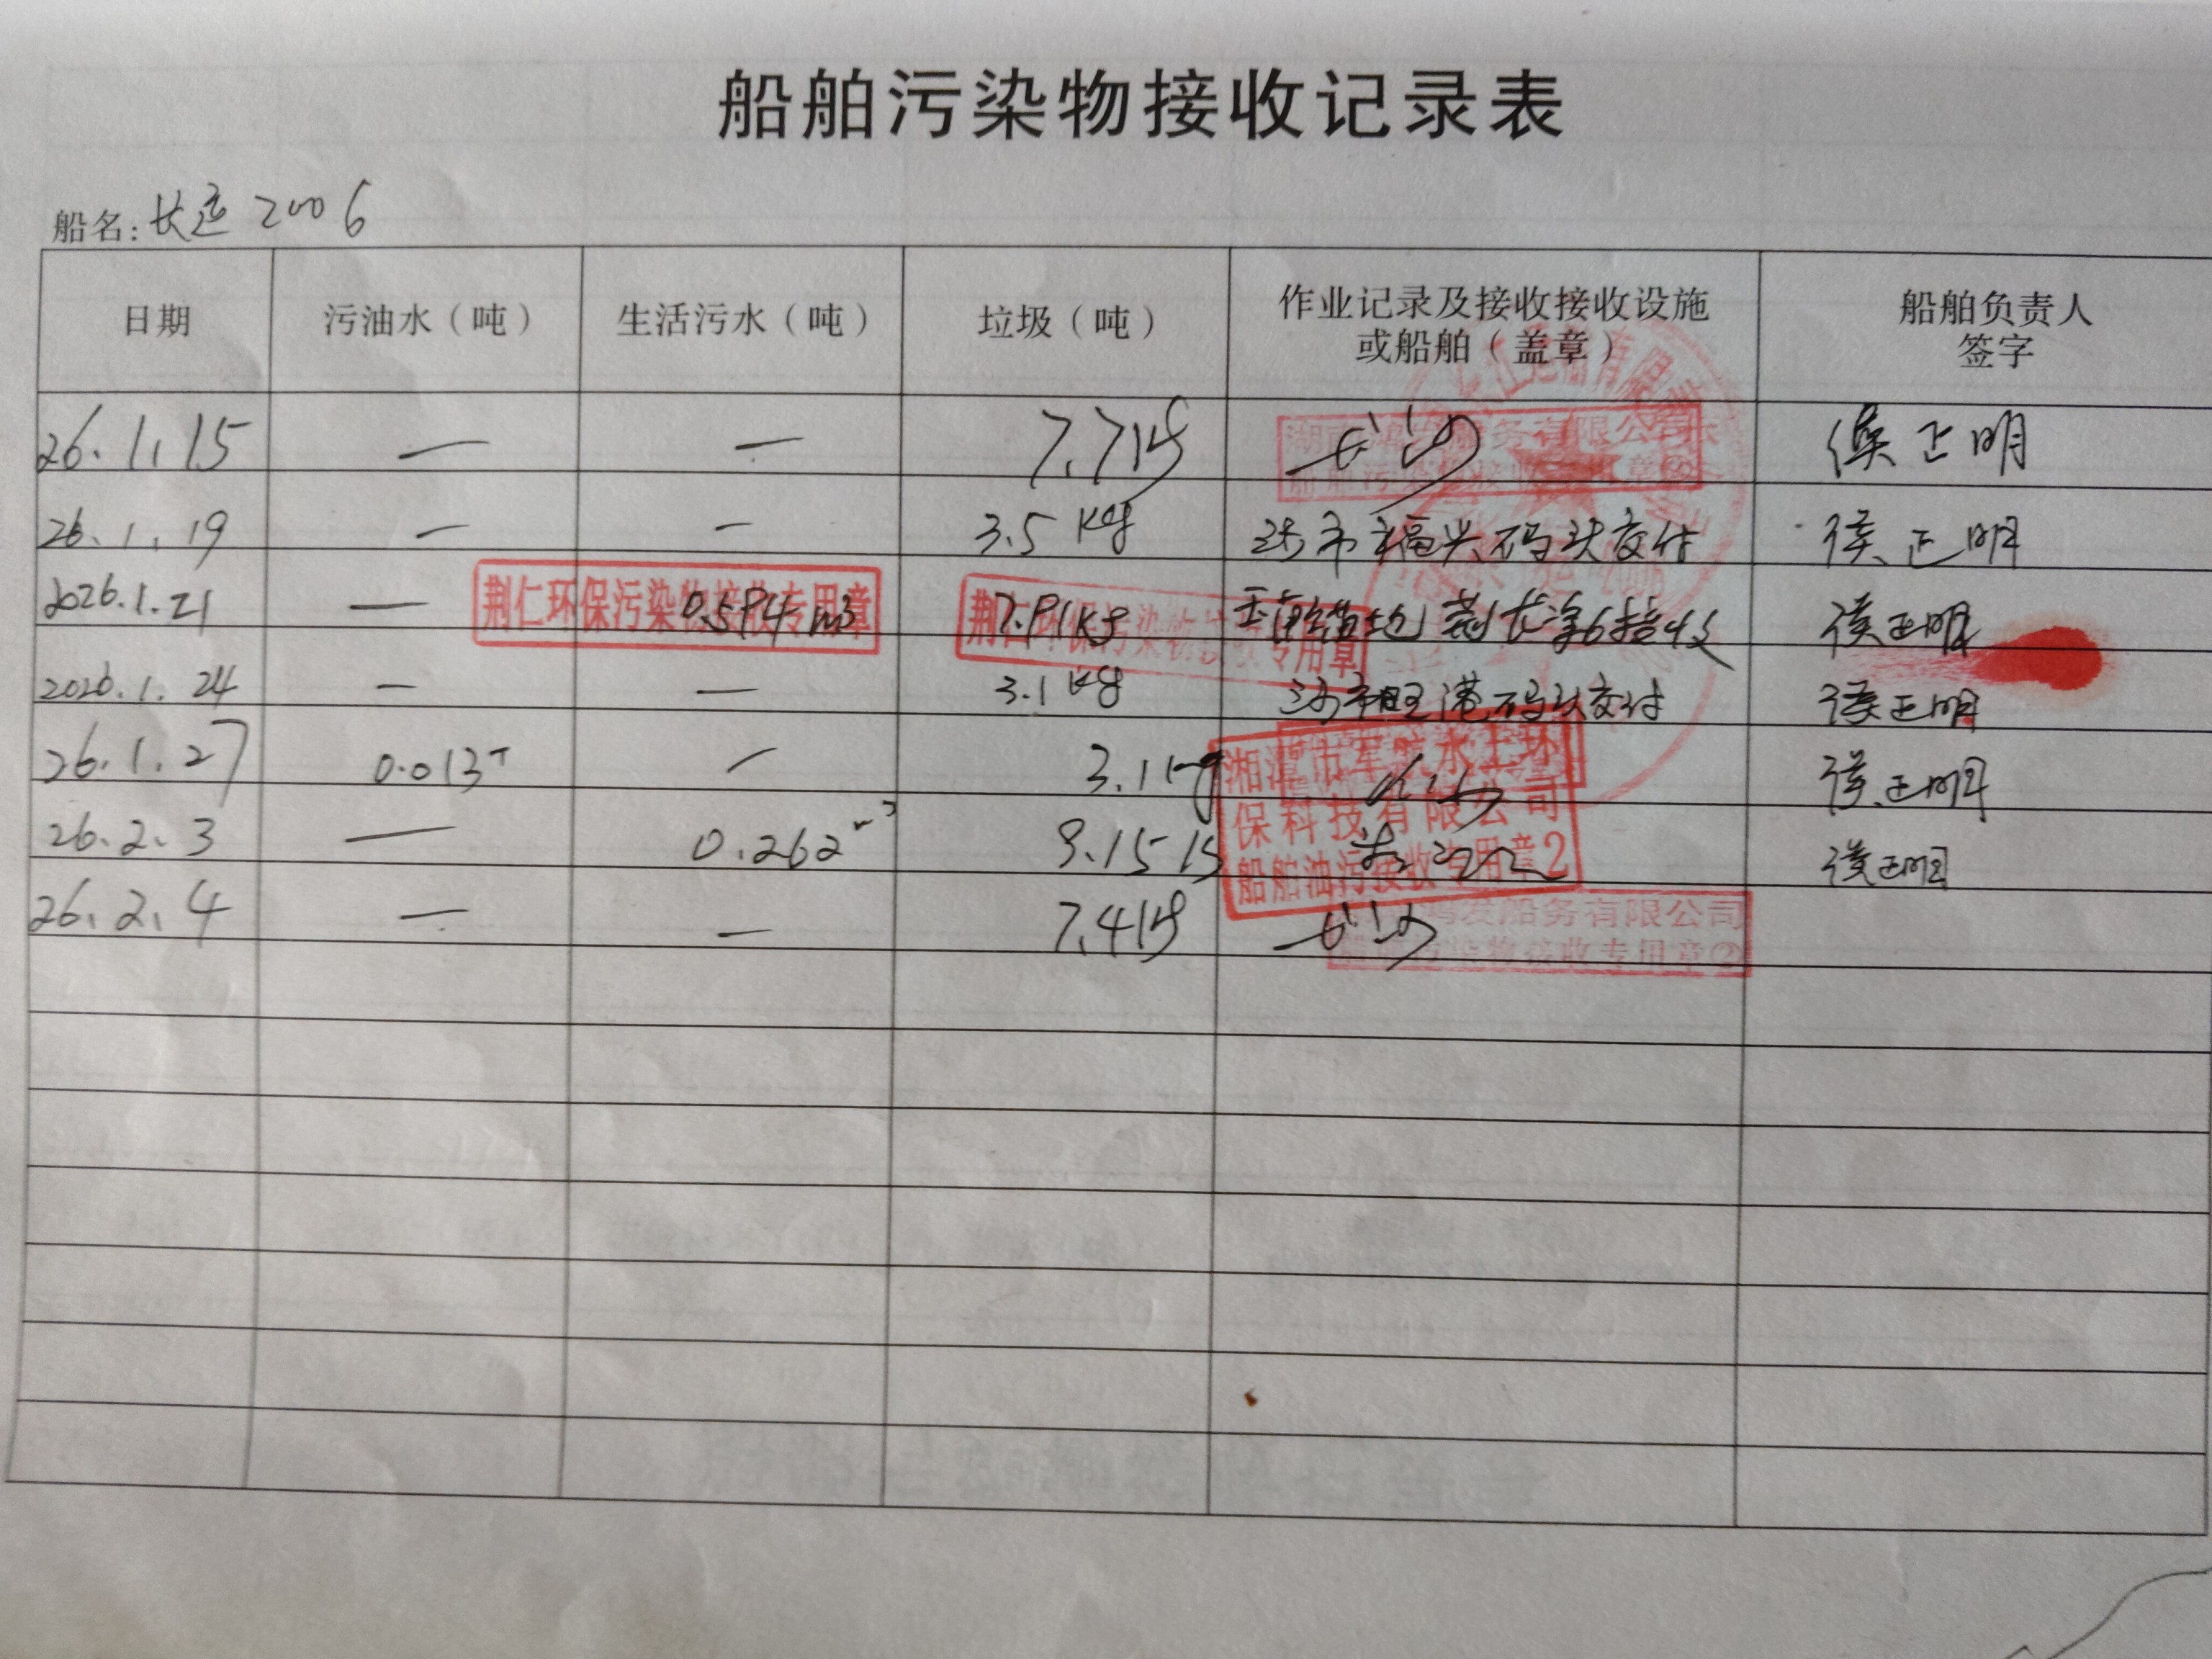 船舶污染物接收记录表
船名: 长运 2006
日期 污油水（吨） 生活污水（吨） 垃圾（吨） 作业记录及接收接收设施或船舶（盖章） 船舶负责人签字
26.1.15 — — 7.7kg 长沙 侯正明
26.1.19 — — 3.5kg 沙市福兴码头交付 侯正明
2026.1.21 — 0.594m³ 7.91kg 锚地 荆长净6接收 侯正明
荆仁环保污染物接收专用章
荆仁环保污染物接收专用章
2026.1.24 — — 3.1kg 沙市旺港码头交付 侯正明
26.1.27 0.013T — 3.1kg 侯正明
湘潭市军航水上环
保科技有限公司
船舶油污接收专用章2
26.2.3 — 0.262m³ 9.15kg 侯正明
26.2.4 — — 7.4kg 长沙
鸿发船务有限公司
船舶污染物接收专用章②